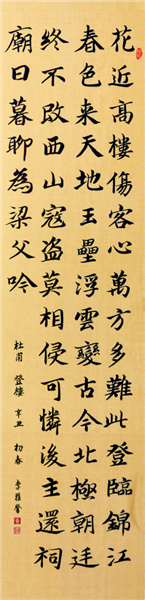 花近高樓傷客心萬方多難此登臨錦江
春色来天地玉壘浮雲變古今北極朝廷
終不改西山寇盗莫相侵可憐後主還祠
廟日暮聊為梁父吟
杜甫 登樓 辛丑 初春 李雅馨